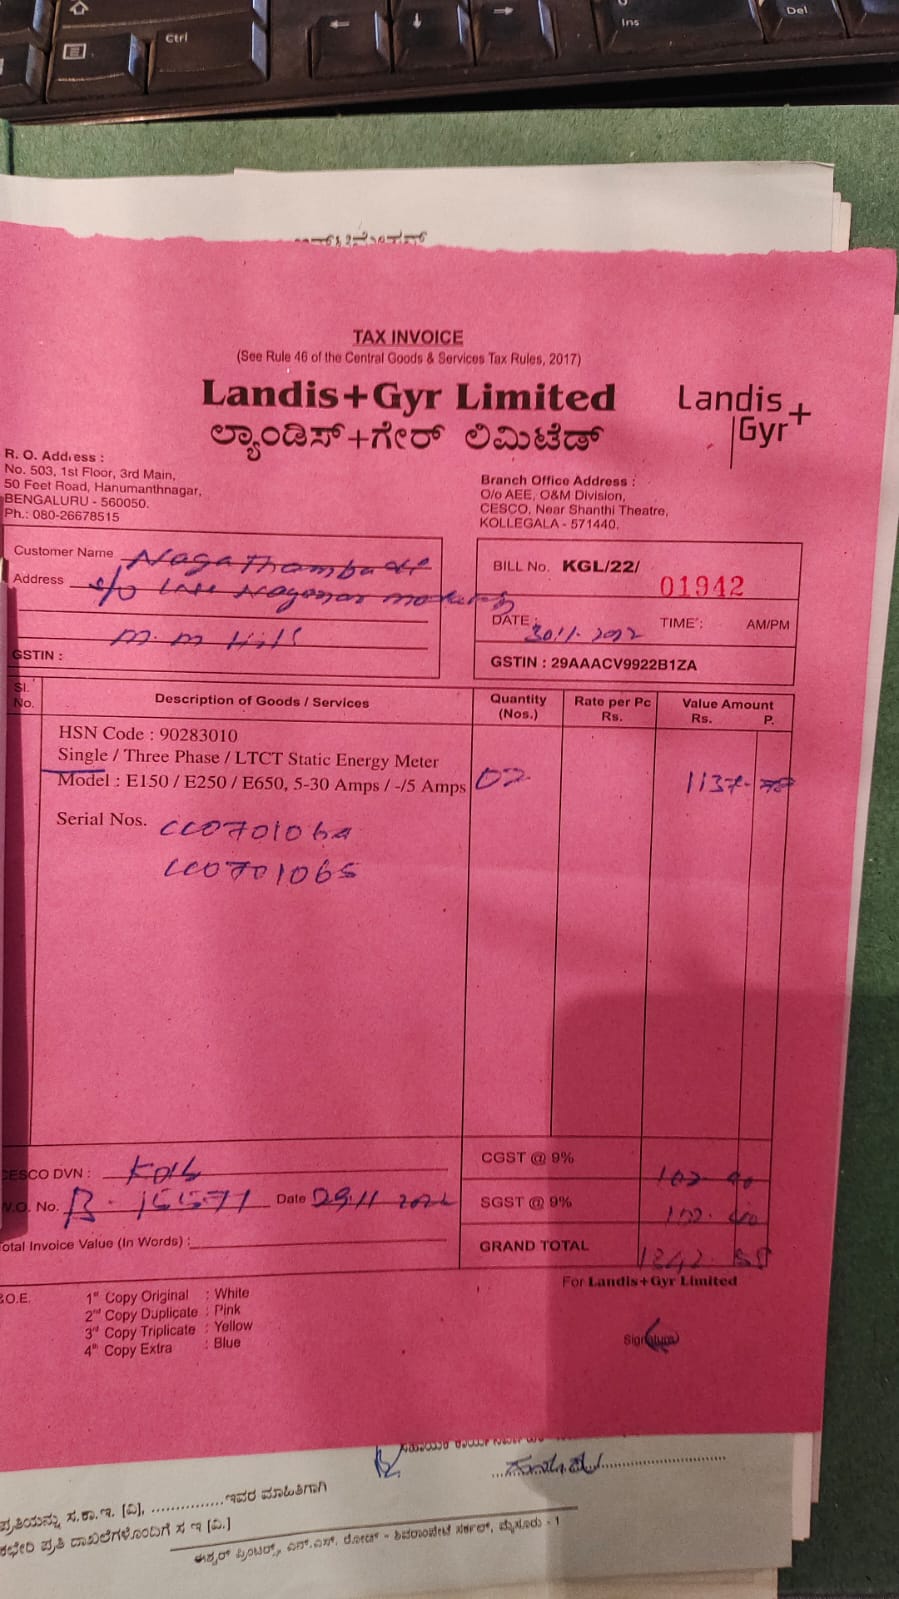 Ctrl
Ins
Del
TAX INVOICE
(See Rule 46 of the Central Goods & Services Tax Rules, 2017)
Landis+Gyr Limited
ಲ್ಯಾಂಡಿಸ್+ಗೇರ್ ಲಿಮಿಟೆಡ್
Landis+
Gyr
R. O. Address :
No. 503, 1st Floor, 3rd Main,
50 Feet Road, Hanumanthnagar,
BENGALURU - 560050.
Ph.: 080-26678515
Branch Office Address :
O/o AEE, O&M Division,
CESCO, Near Shanthi Theatre,
KOLLEGALA - 571440.
Customer Name
Address
M. M Hills
GSTIN :
BILL No. KGL/22/ 01942
DATE : 30.11.2022 TIME : AM/PM
GSTIN : 29AAACV9922B1ZA
Sl. No. Description of Goods / Services Quantity (Nos.) Rate per Pc Rs. Value Amount Rs. P.
HSN Code : 90283010
Single / Three Phase / LTCT Static Energy Meter
Model : E150 / E250 / E650, 5-30 Amps / -/5 Amps 02 1137.78
Serial Nos. CC0701064
CC0701065
CESCO DVN :
CGST @ 9% 102.40
W.O. No. Date 29.11.2022
SGST @ 9% 102.40
Total Invoice Value (In Words) :
GRAND TOTAL 1342.58
For Landis+Gyr Limited
S.O.E.
1st Copy Original : White
2nd Copy Duplicate : Pink
3rd Copy Triplicate : Yellow
4th Copy Extra : Blue
Signature
ಪ್ರತಿಯನ್ನು ಸ.ಕಾ.ಇ. [ವಿ], ...............ಇವರ ಮಾಹಿತಿಗಾಗಿ
ಕಛೇರಿ ಪ್ರತಿ ದಾಖಲೆಗಳೊಂದಿಗೆ ಸ ಇ [ವಿ.]
ಈಶ್ವರ್ ಪ್ರಿಂಟರ್ಸ್, ಎನ್.ಎಸ್. ರೋಡ್ - ಶಿವರಾಂಪೇಟೆ ಸರ್ಕಲ್, ಮೈಸೂರು - 1